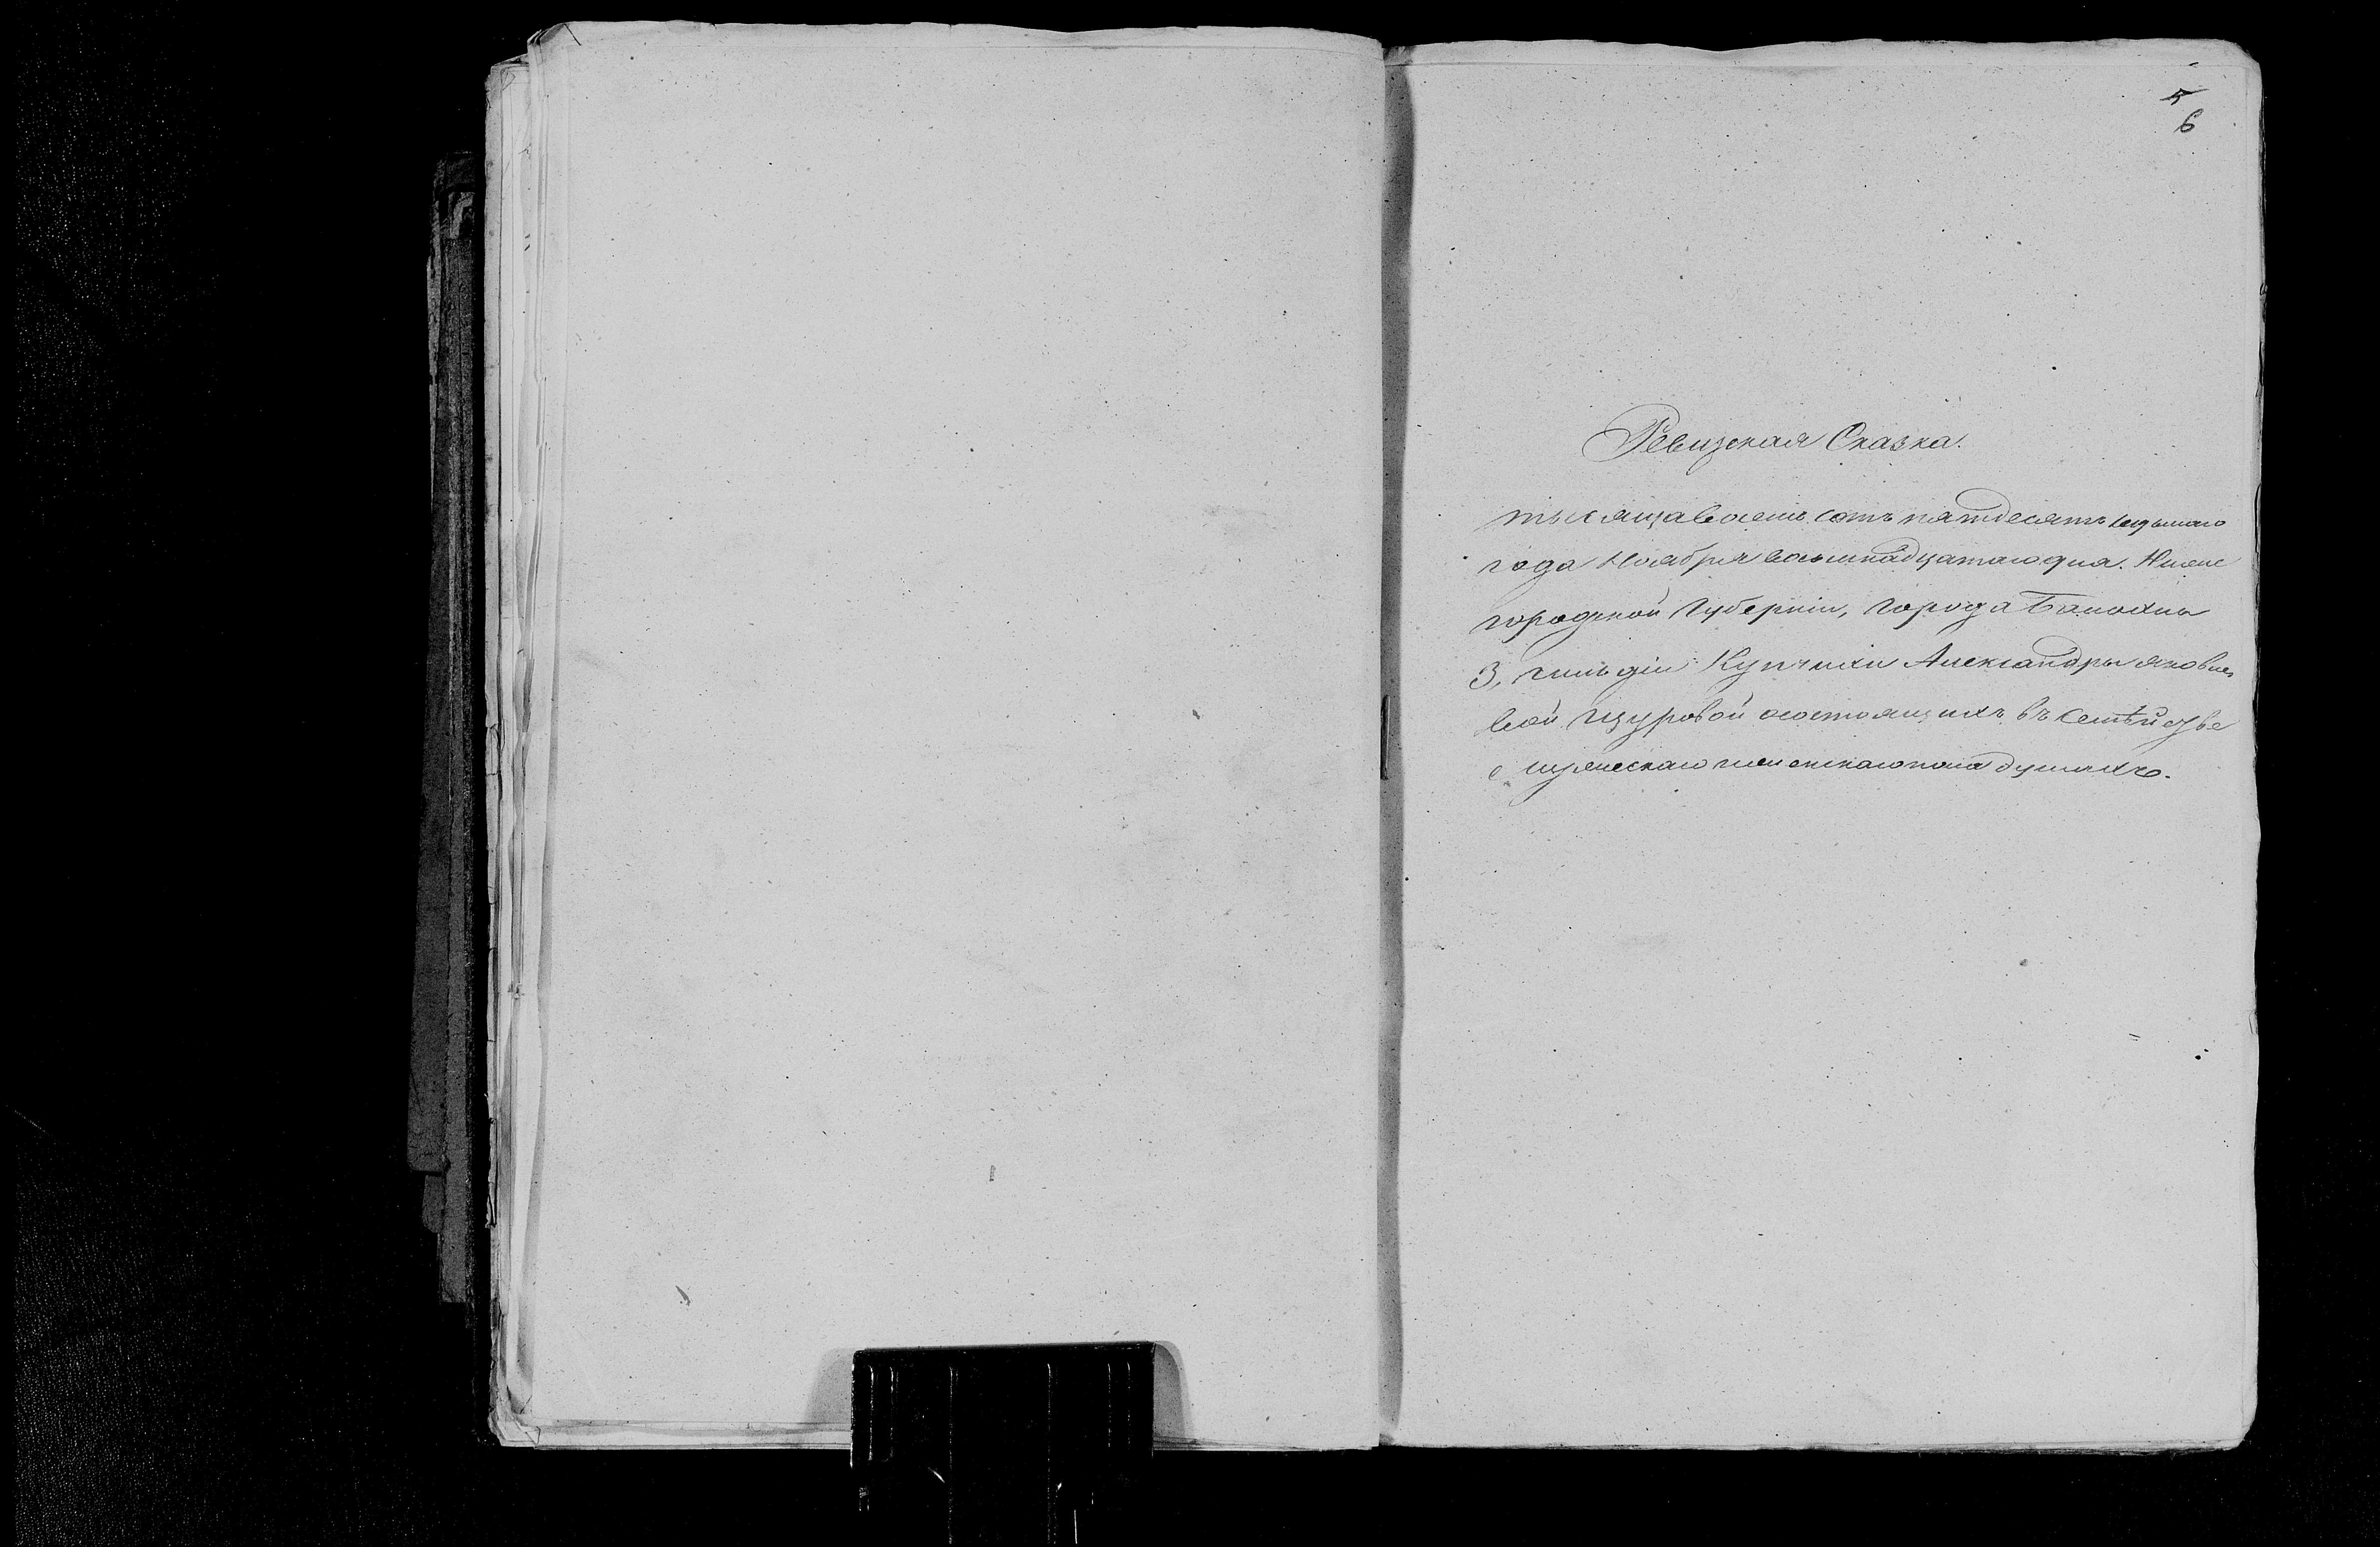 5
6
Ревизская Сказка.
тысяща восемь сотъ пятдесятъ седьмаго
года Ноября восемнадцатаго дня. Ниже
городской Губерніи, города Балахны
3, гильдіи Купчихи Александры Яковле
вой Щуровой состоящихъ въ Семѣйстве
о мужескаго и женскаго пола душахъ.